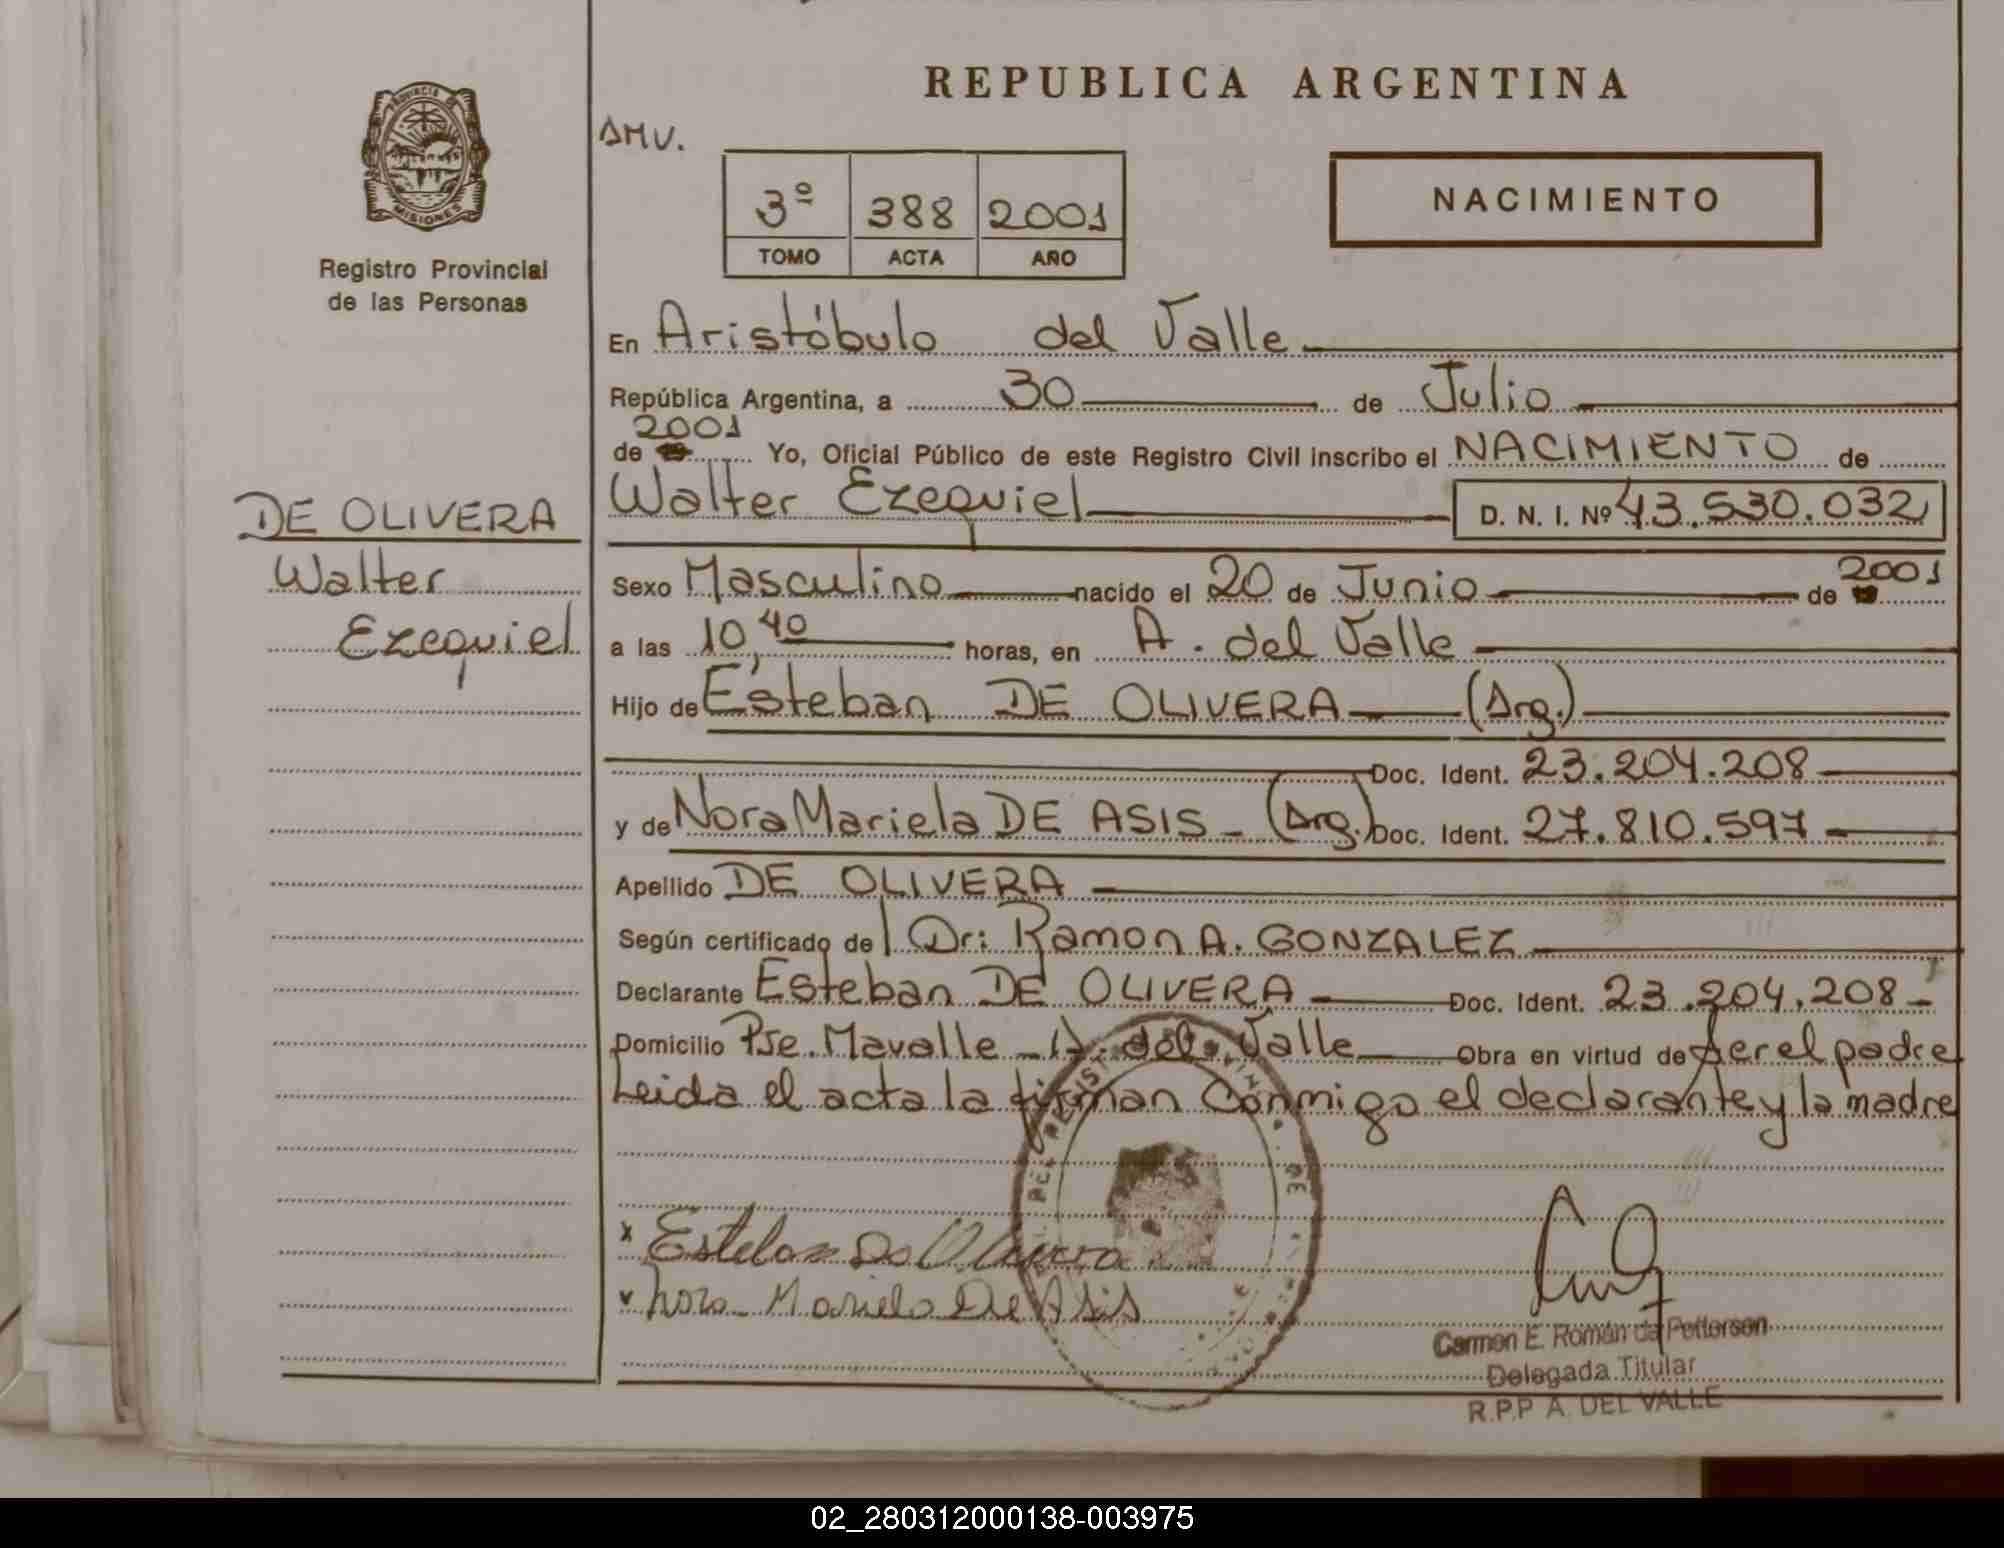 REPUBLICA ARGENTINA
PROVINCIA DE
MISIONES
Registro Provincial
de las Personas
AMV.
3º 388 2001
TOMO ACTA AÑO
NACIMIENTO
En Aristóbulo del Valle
República Argentina, a 30 de Julio
de 2001 Yo, Oficial Público de este Registro Civil inscribo el NACIMIENTO de
Walter Ezequiel D. N. I. Nº 43.530.032
DE OLIVERA
Walter
Ezequiel
Sexo Masculino nacido el 20 de Junio de 2001
a las 10,40 horas, en A. del Valle
Hijo de Esteban DE OLIVERA (Arg.)
Doc. Ident. 23.204.208
y de Nora Mariela DE ASIS - (Arg.) Doc. Ident. 27.810.597
Apellido DE OLIVERA
Según certificado de Dr: Ramon A. GONZALEZ
Declarante Esteban DE OLIVERA Doc. Ident. 23.204.208
Domicilio Pje. Mavalle - A. del Valle Obra en virtud de ser el padre
Leida el acta la firman conmigo el declarante y la madre
x Esteban De Olivera
Nora Mariela De Asis
Carmen E. Román de Petterson
Delegada Titular
R.P.P A. DEL VALLE
02_280312000138-003975